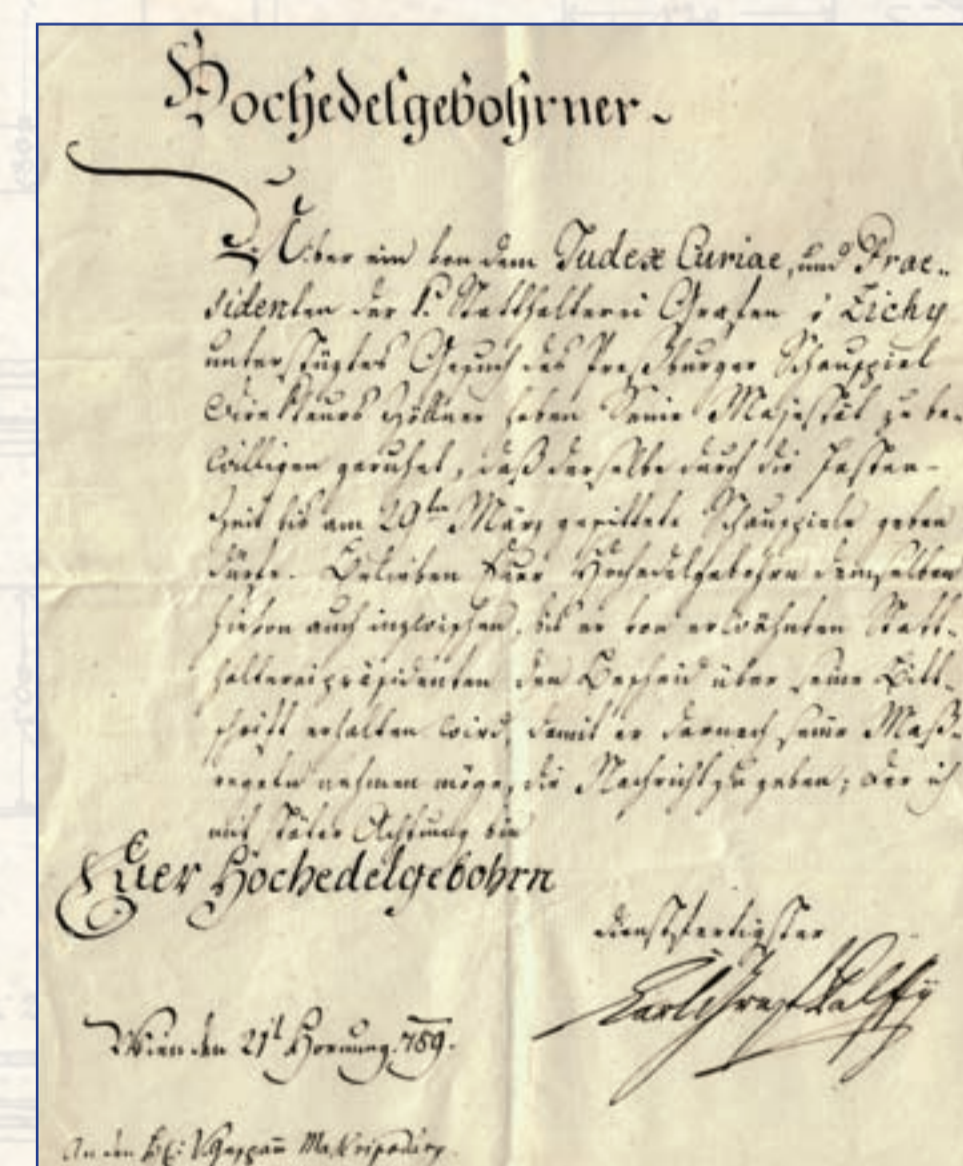 Hochedelgebohrner.
Über ein von dem Judex Curiae, und Prae-
sidenten der k. Statthalterei Grafen v Zichy
unterstüztes Gesuch des Presburger Schauspiel
Direkteurs Zöllner haben Seine Majestät zu be-
willigen geruhet, daß derselbe durch die Fasten-
Zeit bis am 29ten März gesittete Schauspiele geben
dürfe. Belieben Euer Hochedelgebohrn demselben
hievon auch inzwischen, bis er von erwähnten Statt-
haltereipräsidenten den Bescheid über seine Bitt-
schrift erhalten wird, damit er darnach seine Maß-
regeln nehmen möge, die Nachricht zu geben; der ich
mit Achtung bin
Euer Hochedelgebohrn
dienstfertigster
Karl Graf Palffy
Wien den 21t Hornung 789.
An den